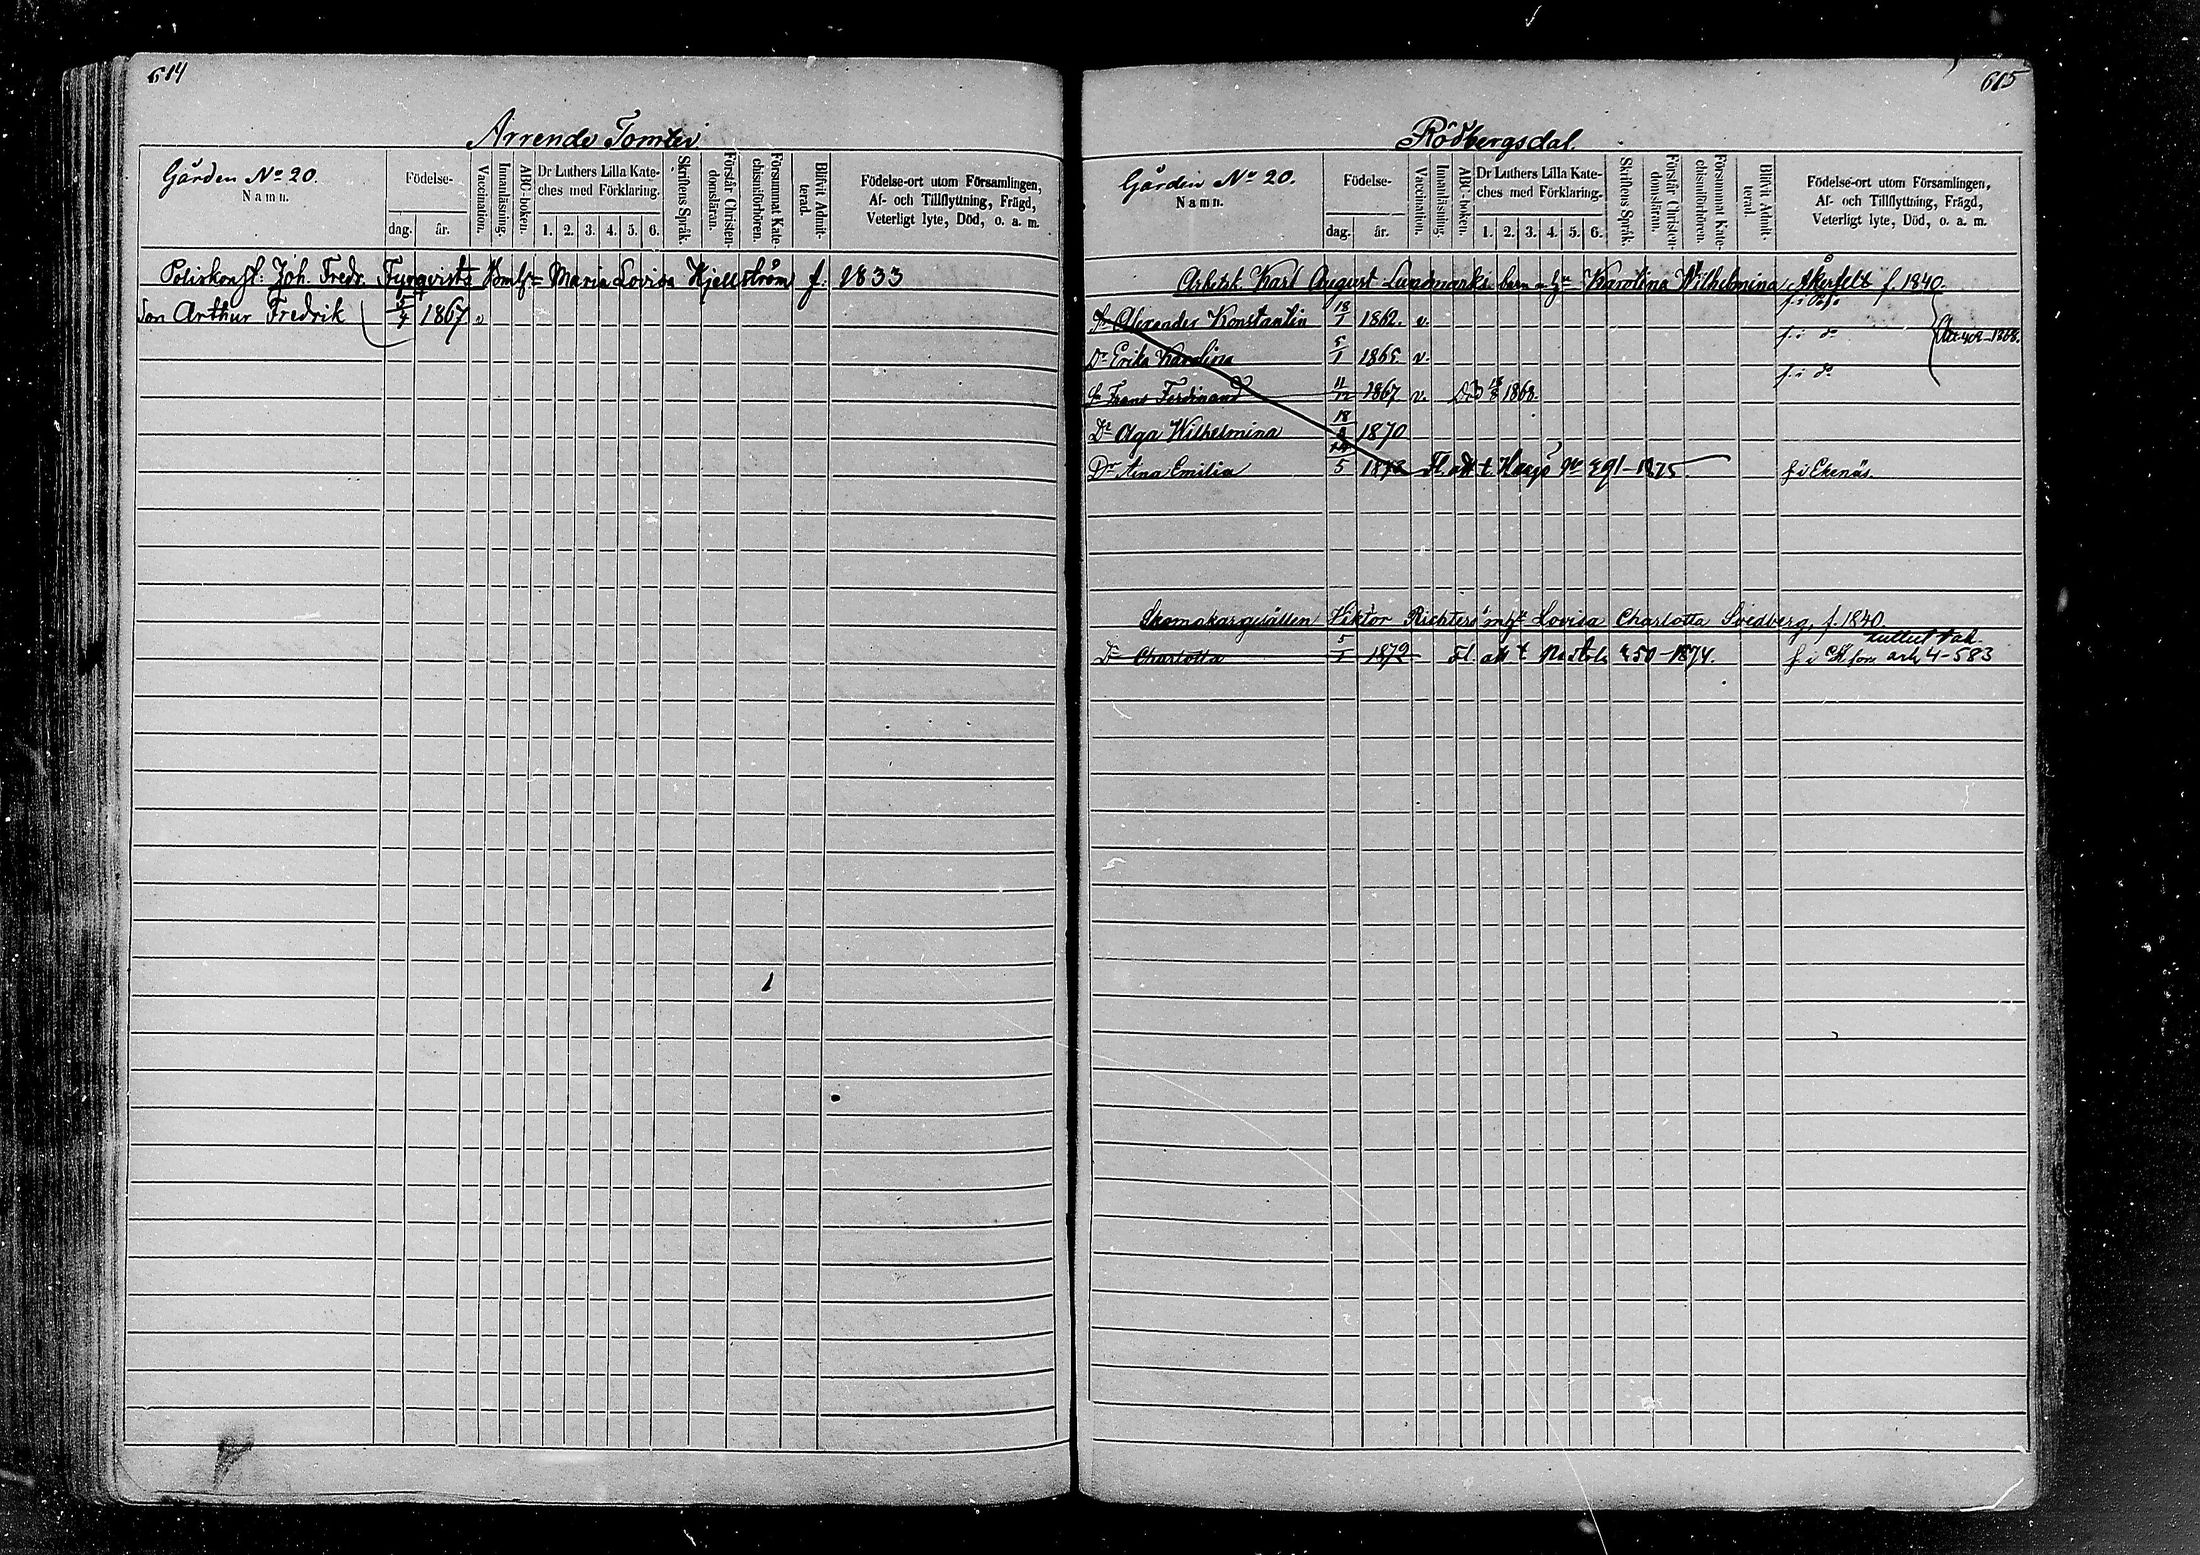 614
Arrende Tomter
Gården No 20.
Namn.
Födelse-
dag.
år.
Vaccination.
Innanläsning.
ABC-boken.
Dr Luthers Lilla Kate-
ches med Förklaring.
1. 2. 3. 4. 5. 6.
Skriftens Språk.
Förstår Christen-
domsläran.
Försummat Kate-
chismiförhören.
Blifvit Admit-
terad.
Födelse-ort utom Församlingen,
Af- och Tillflyttning, Frägd,
Veterligt lyte, Död, o. a. m.
Poliskonst. Joh. Fredr. Maria Lovisa Kjellström f. 1833
Son Arthur Fredrik 5/4 1867 v
615
Rödbergsdal.
Gården No 20.
Namn.
Födelse-
dag.
år.
Vaccination.
Innanläsning.
ABC-boken.
Dr Luthers Lilla Kate-
ches med Förklaring.
1. 2. 3. 4. 5. 6.
Skriftens Språk.
Förstår Christen-
domsläran.
Försummat Kate-
chismiförhören.
Blifvit Admit-
terad.
Födelse-ort utom Församlingen,
Af- och Tillflyttning, Frägd,
Veterligt lyte, Död, o. a. m.
Arbetsk. Karl August Lundmarks barn m. hu Karolina Wilhelmina Åkerfelt f. 1840.
Sn Alexander Konstantin 18/1 1862. v.
Dr Erika Karolina 5/1 1865 v. f. i do
Sn Frans Ferdinand 11/12 1867 v. Död 1868. f. i do
Dr Olga Wilhelmina 1870
Dr Aina Emilia 5 Fl. att t. 291-1875 f i Ekenäs.
Skomakargesällen Viktor Richters m hu Lovisa Charlotta Svedberg, f. 1840
Dr Charlotta 5/1 1872 Fl. att t 250-1874. f i 4-583